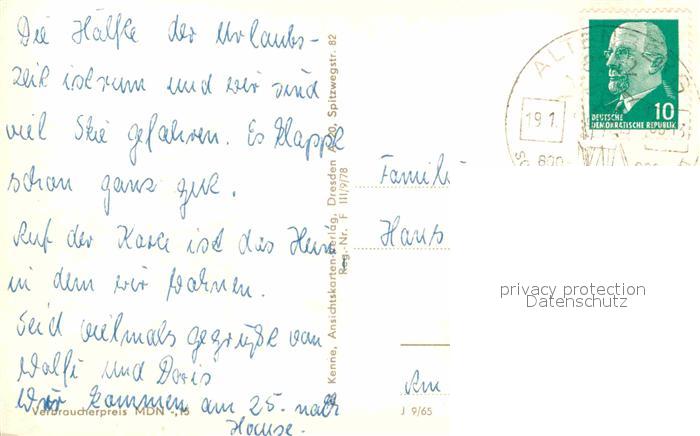 Die Hälfte der Urlaubs-
zeit ist rum und wir sind
viel Skie gefahren. Es klappt
schon ganz gut.
Auf der Karte ist das Heim
in dem wir wohnen.
Seid vielmals gegrüßt von
Wolfi und Doris
Wir kommen am 25. nach
Hause.
Verbraucherpreis MDN -,15
Kenne, Ansichtskarten-Verlag, Dresden A 20, Spitzwegstr. 82
Reg.-Nr. F III/9/78
ALT
19.1.
800
10
DEUTSCHE
DEMOKRATISCHE REPUBLIK
Famili
Hans
Am
J 9/65
privacy protection
Datenschutz